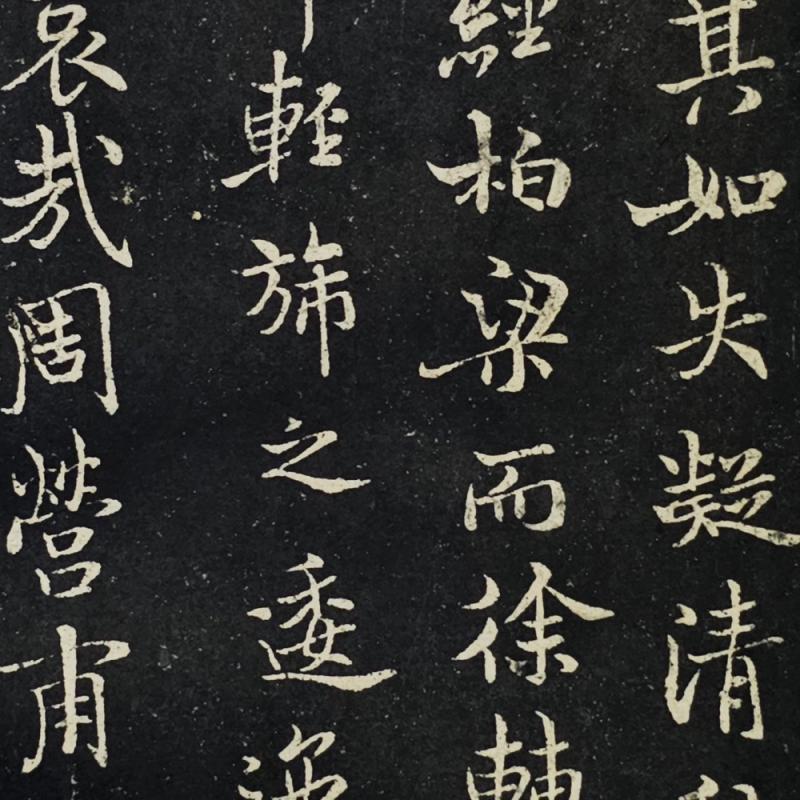 其如失疑清
經柏梁而徐轉
輕旆之逶迤
哀哉周營甫